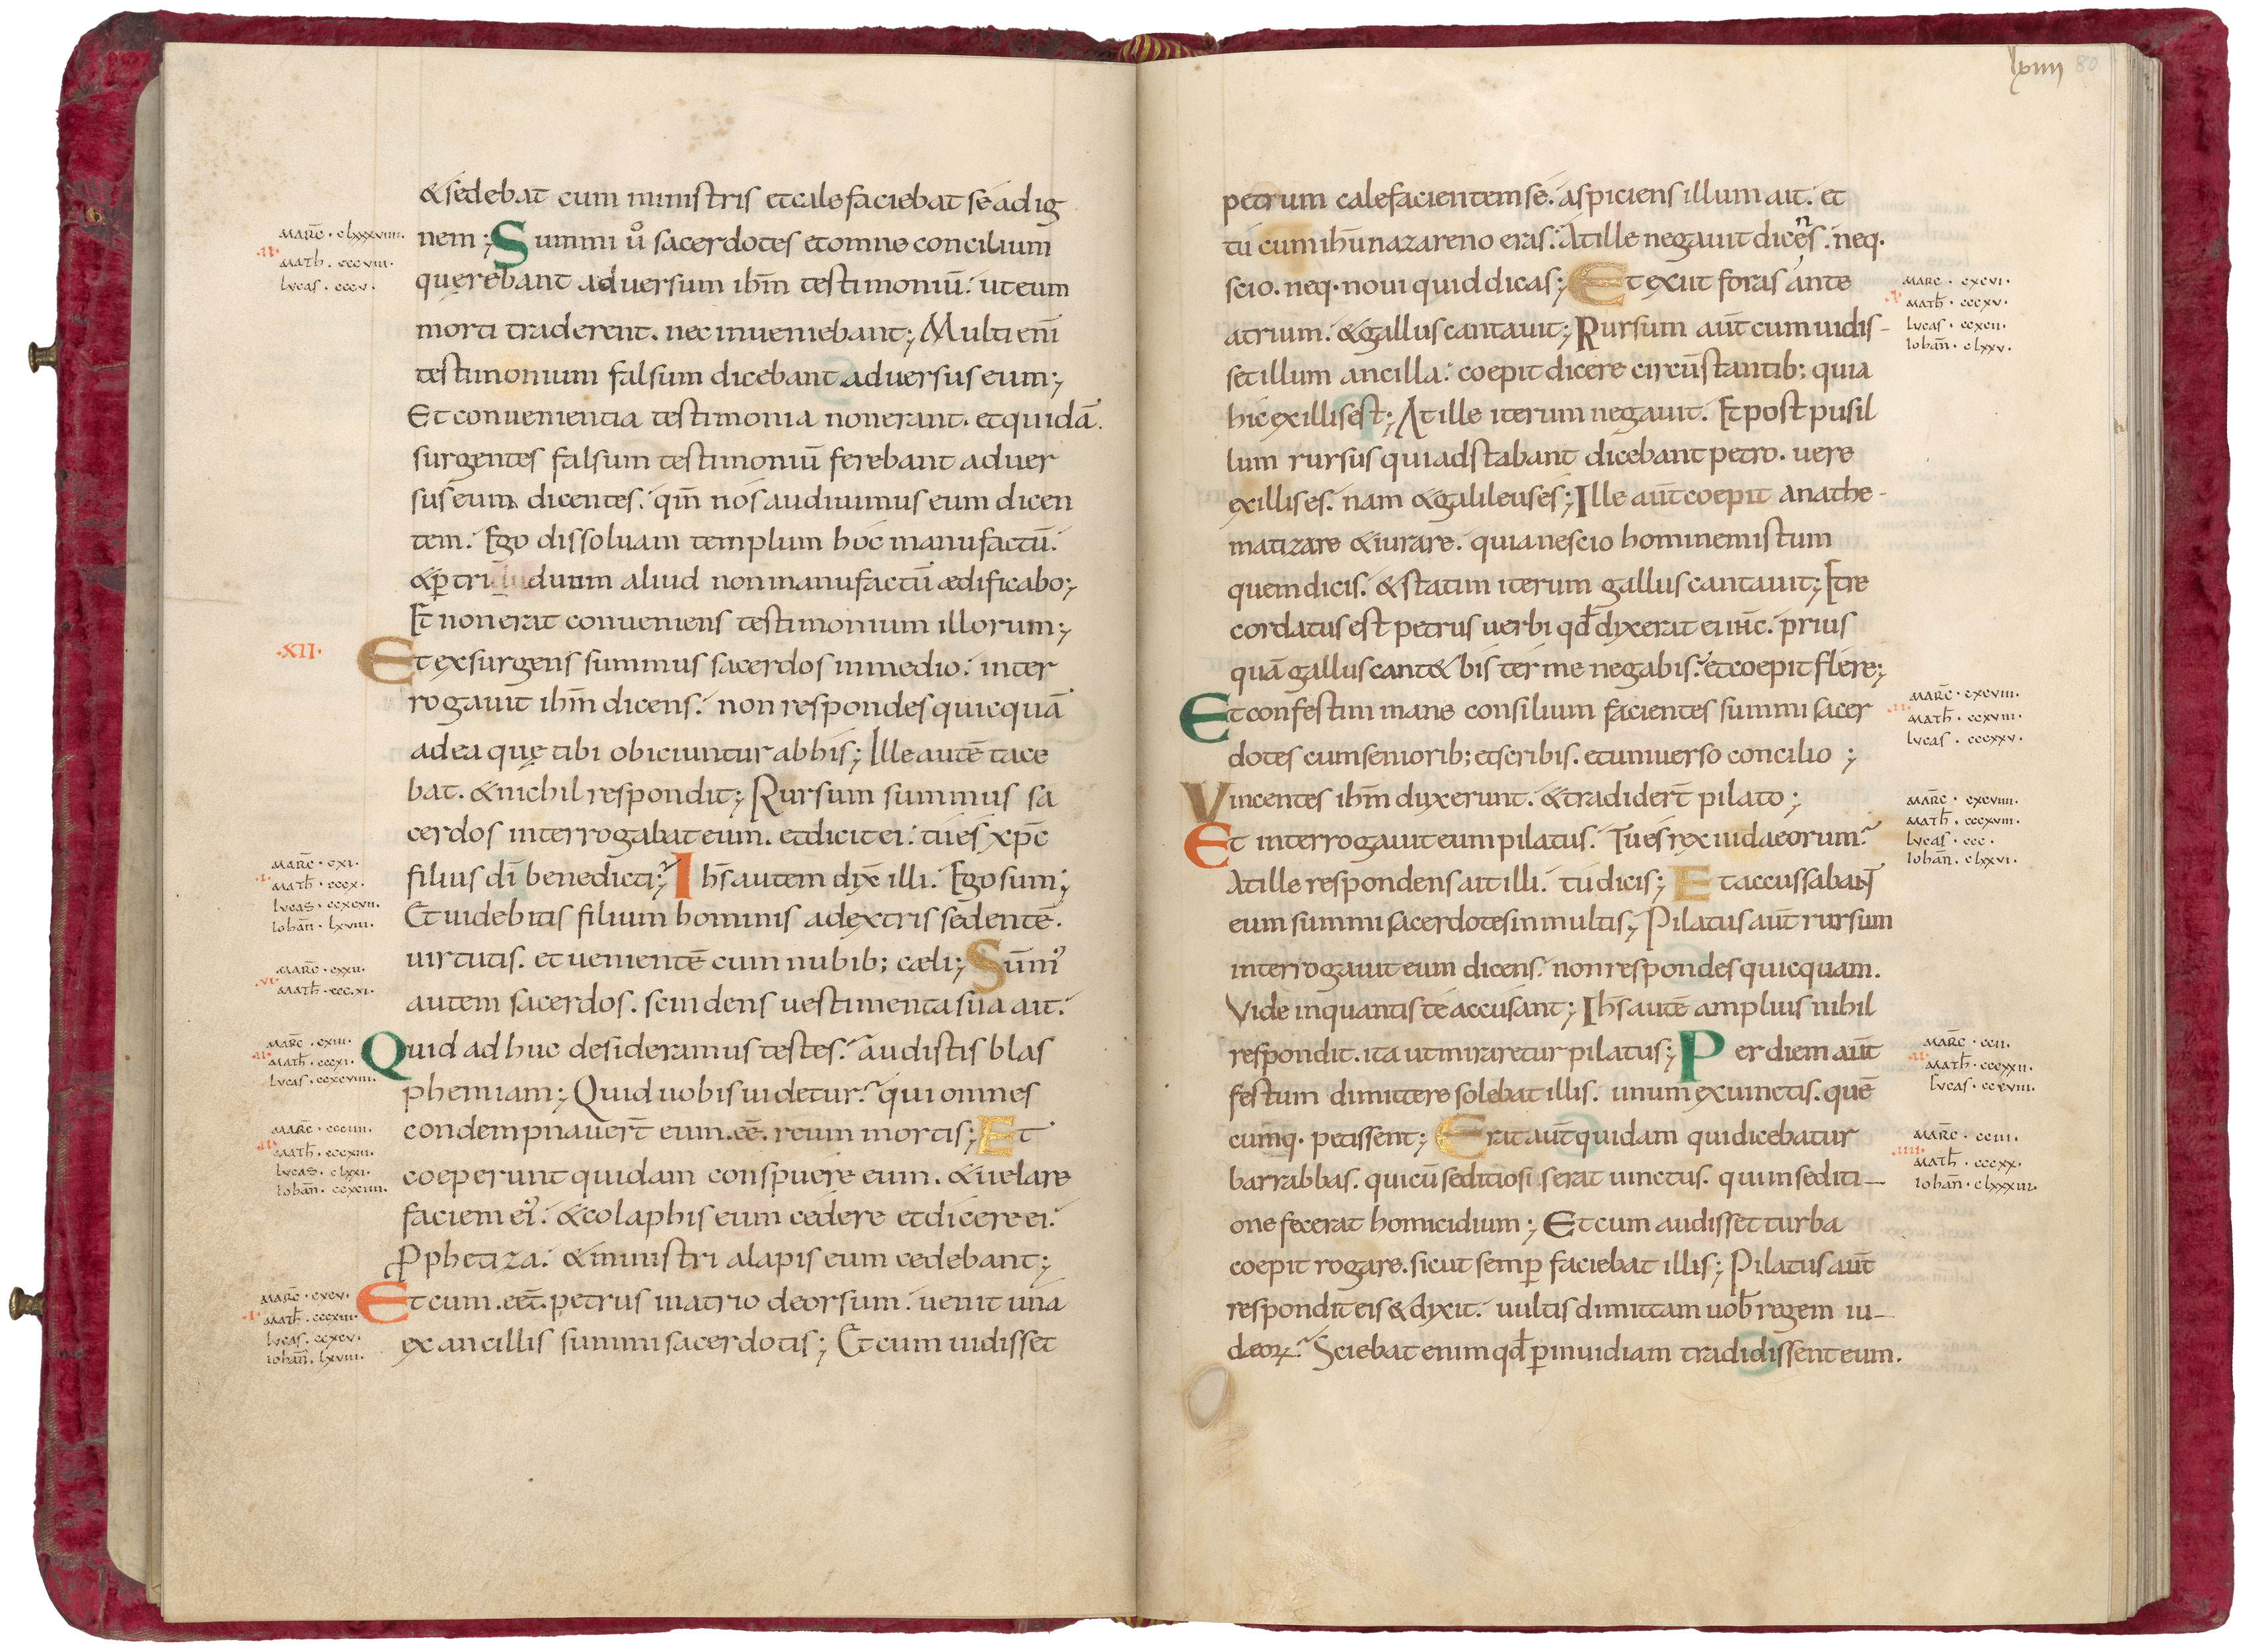 & sedebat cum ministris et calefaciebat se ad ig
nem; Summi ů sacerdotes et omne concilium
quęrebant aduersum ihm̄ testimoniū. ut eum
morti traderent. nec inueniebant; Multi eni̅
testimonium falsum dicebant aduersus eum;
Et conuenientia testimonia non erant. et quidā.
surgentes falsum testimoniū ferebant aduer
sus eum dicentes. qm̄ nos audiuimus eum dicen
tem. Ego dissoluam templum hoc manu factū.
& ꝑ triduum aliud non manu factū ædificabo;
Et non erat conueniens testimonium illorum;
Et exsurgens summus sacerdos in medio. inter
rogauit ihm̄ dicens. non respondes quicquā
ad ea quę tibi obiciuntur ab his; Ille autē tace
bat. & nichil respondit; Rursum summus sa
cerdos interrogabat eum. et dicit ei. tu es xpc̄
filius dī benedicti; Ihs̄ autem dyx̄ illi. Ego sum;
Et uidebitis filium hominis a dextris sedentē.
uirtutis. et uenientē cum nubib; cæli; Sūm᾽
autem sacerdos. scindens uestimenta sua ait.
Quid adhuc desideramus testes. audistis blas
phemiam; Quid uobis uidetur. qui omnes
condempnauer̄t eum. eē. reum mortis; Et
coeperunt quidam conspuere eum. & uelare
faciem ei᾽. & colaphis eum cedere et dicere ei.
Ꝓphetiza. & ministri alapis eum cedebant;
Et cum. eēt. petrus in atrio deorsum. uenit una
ex ancillis summi sacerdotis; Et cum uidisset
marc̄ . clxxxviiii.
.ii.
math . cccviii.
lucas . cccv.
.XII.
marc̄ . cxi.
.i.
math̄ . cccx.
lucas . ccxcvii.
iohan̄ . lxviii.
marc̄ . cxxii.
.vi.
math̄ . ccc.xi.
marc̄ . cxiii.
.ii.
math̄ . cccxi.
lucas . ccxcviiii.
marc̄ . ccciiii.
math̄ . cccxiii.
lucas . clxxi.
iohan̄ . ccxciiii.
marc̄ . cxcv.
.i.
math̄ . cccxiii.
lucas . ccxcv.
iohan̄ . lxviii.
80
petrum calefacientem se. aspiciens illum ait. et
tu cum ihū nazareno eras. At ille negauit dicens. neq.
scio. neq. noui quid dicas; Et exiit foras ante
atrium. & gallus cantauit; Rursum aūt cum uidis-
set illum ancilla. coepit dicere circūstantib; quia
hic ex illis est; At ille iterum negauit. Et post pusil
lum rursus qui adstabant dicebant petro. uere
ex illis es. nam & galileus es; Ille aūt coepit anathe-
matizare & iurare. quia nescio hominem istum
quem dicis. & statim iterum gallus cantauit; Et re
cordatus est petrus uerbi qd̄ dyxerat ei ihc̄. prius
quā gallus cant& bis ter me negabis. et coepit flere;
Et confestim mane consilium facientes summi sacer
dotes cum seniorib; et scribis. et uniuerso concilio;
Vincentes ihm̄ duxerunt. & tradider̄t pilato;
Et interrogauit eum pilatus. Tu es rex iudaeorum.
At ille respondens ait illi. tu dicis; Et accussabant
eum summi sacerdotes in multis; Pilatus aūt rursum
interrogauit eum dicens. non respondes quicquam.
Vide in quantis te accusant; Ihs̄ autē amplius nihil
respondit. ita ut miraretur pilatus; Per diem aūt
festum dimittere solebat illis. unum ex uinctis. quē
cumq. petissent; Erat aūt quidam qui dicebatur
barrabbas. qui cū seditiosis erat uinctus. qui in sediti-
one fecerat homicidium; Et cum audisset turba
coepit rogare. sicut semꝑ faciebat illis; Pilatus aūt
respondit eis & dyxit. uultis dimittam uob̄ regem iu-
dæoꝝ. Sciebat enim qd̄ ꝑ inuidiam tradidissent eum.
marc . cxcvi.
math̄ . cccxv.
lucas . ccxcii.
iohan̄ . clxxv.
marc̄ . cxcviii.
.ii.
math̄ . ccxviii.
lucas . cccxxv.
marc̄ . cxcviiii.
math̄ . cccxviii.
lucas . ccc.
iohan̄ . clxxvi.
marc̄ . ccii.
.ii.
math̄ . cccxxii.
lucas . cccviii.
marc̄ . cciii.
.iiii.
math̄ . cccxx.
iohan̄ . clxxxiii.